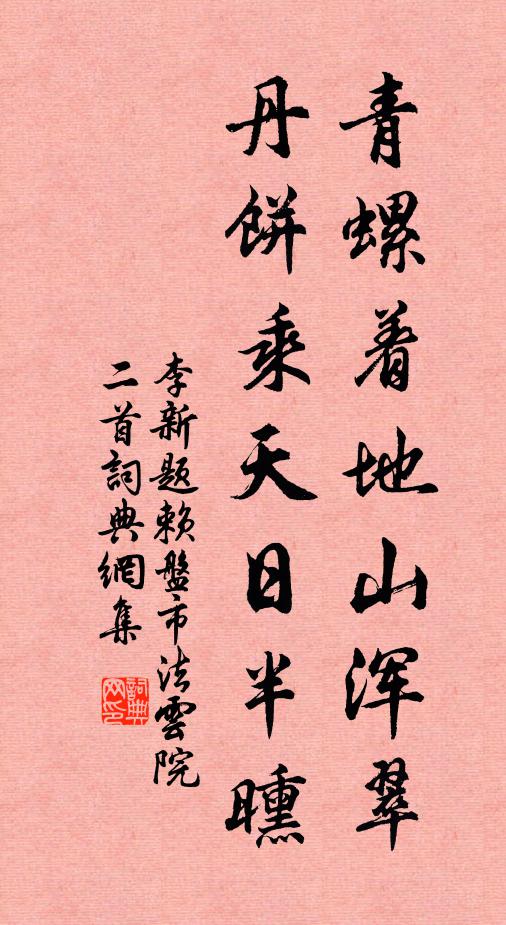 青螺着地山浑翠
丹餅乘天日半曛
李新题赖盤市法雲院
二首詞典網集
詞典网印